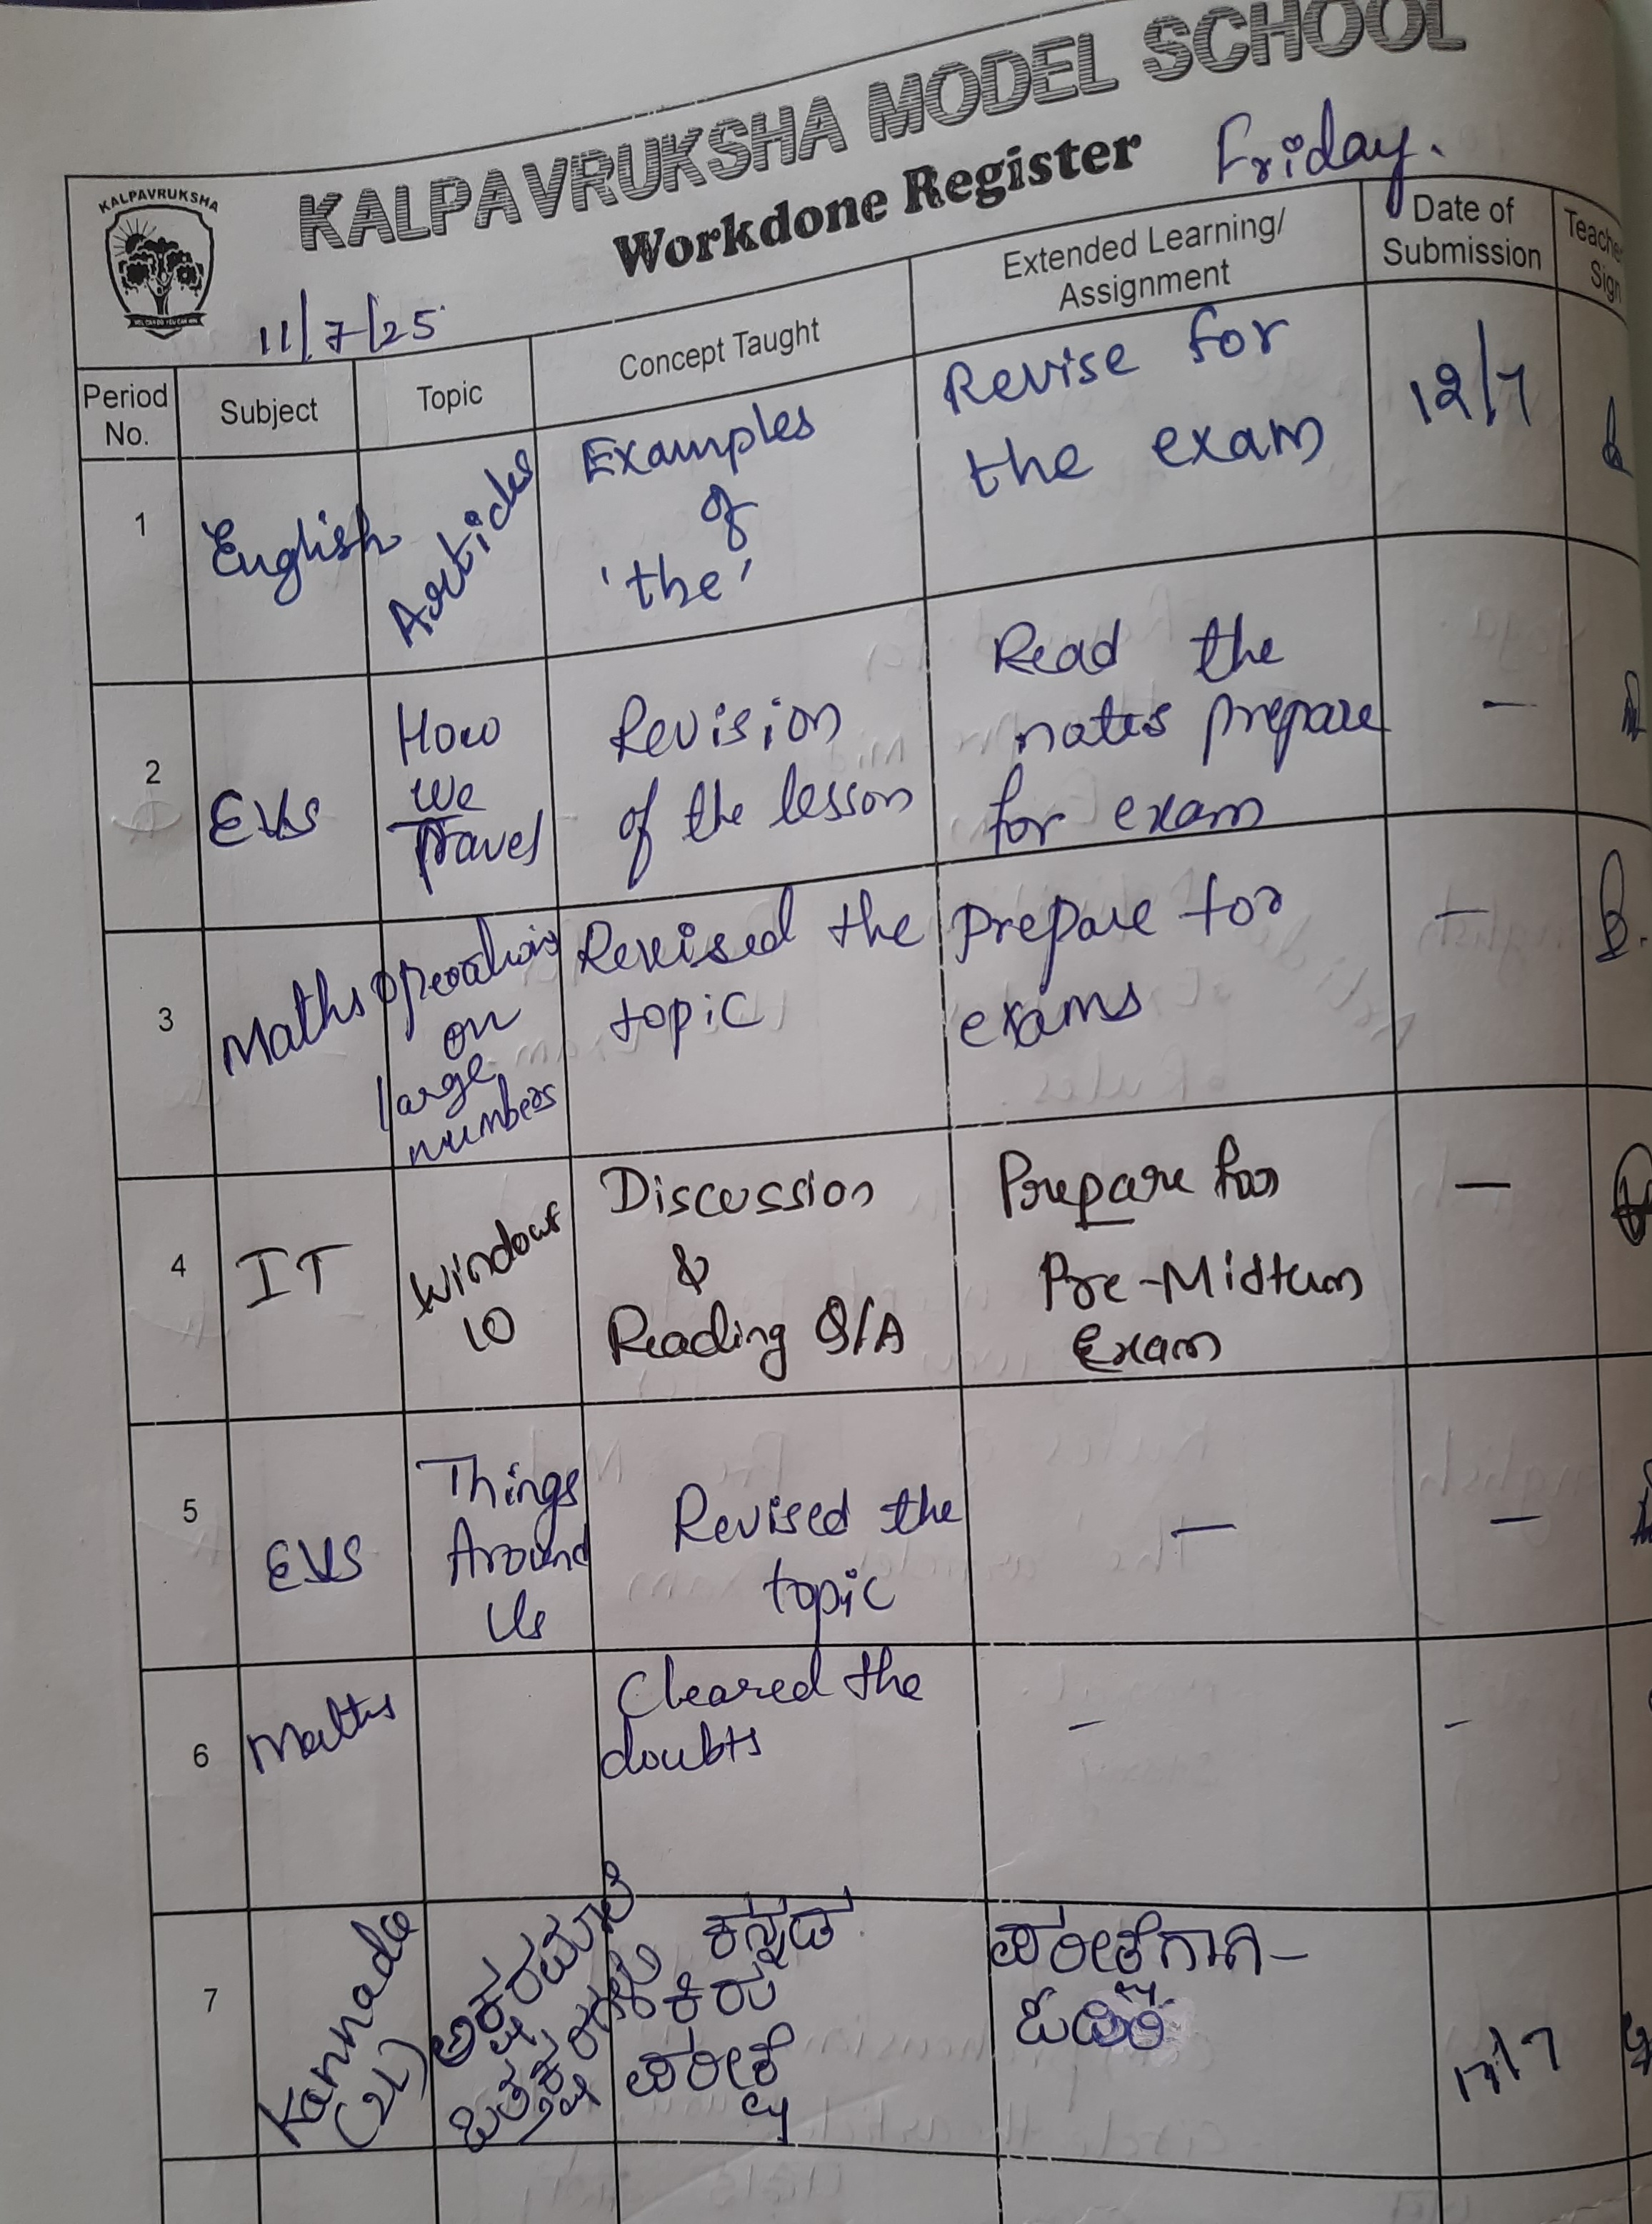 KALPAVRUKSHA MODEL SCHOOL
Workdone Register Friday.
KALPAVRUKSHA
11/7/25
Period No.
Subject
Topic
Concept Taught
Extended Learning/
Assignment
Date of
Submission
Sign
1
English
Articles
Examples
of
'the'
Revise for
the exam
12/7
2
EVS
How
We
Travel
Revision
of the lesson
Read the
notes prepare
for exam
—
3
Maths
Operations
on
large
numbers
Revised the
topic
Prepare for
exams
—
4
IT
Windows
10
Discussion
&
Reading Q/A
Prepare for
Pre-Midterm
Exam
—
5
EVS
Things
Around
Us
Revised the
topic
—
—
6
Maths
Cleared the
doubts
—
—
7
Kannada
(2L)
ಅಕ್ಷರಮಾಲೆ
ಒತ್ತಕ್ಷರಗಳು
ಕನ್ನಡ
ಕಿರು
ಪರೀಕ್ಷೆ
ಪರೀಕ್ಷೆಗಾಗಿ–
17/7